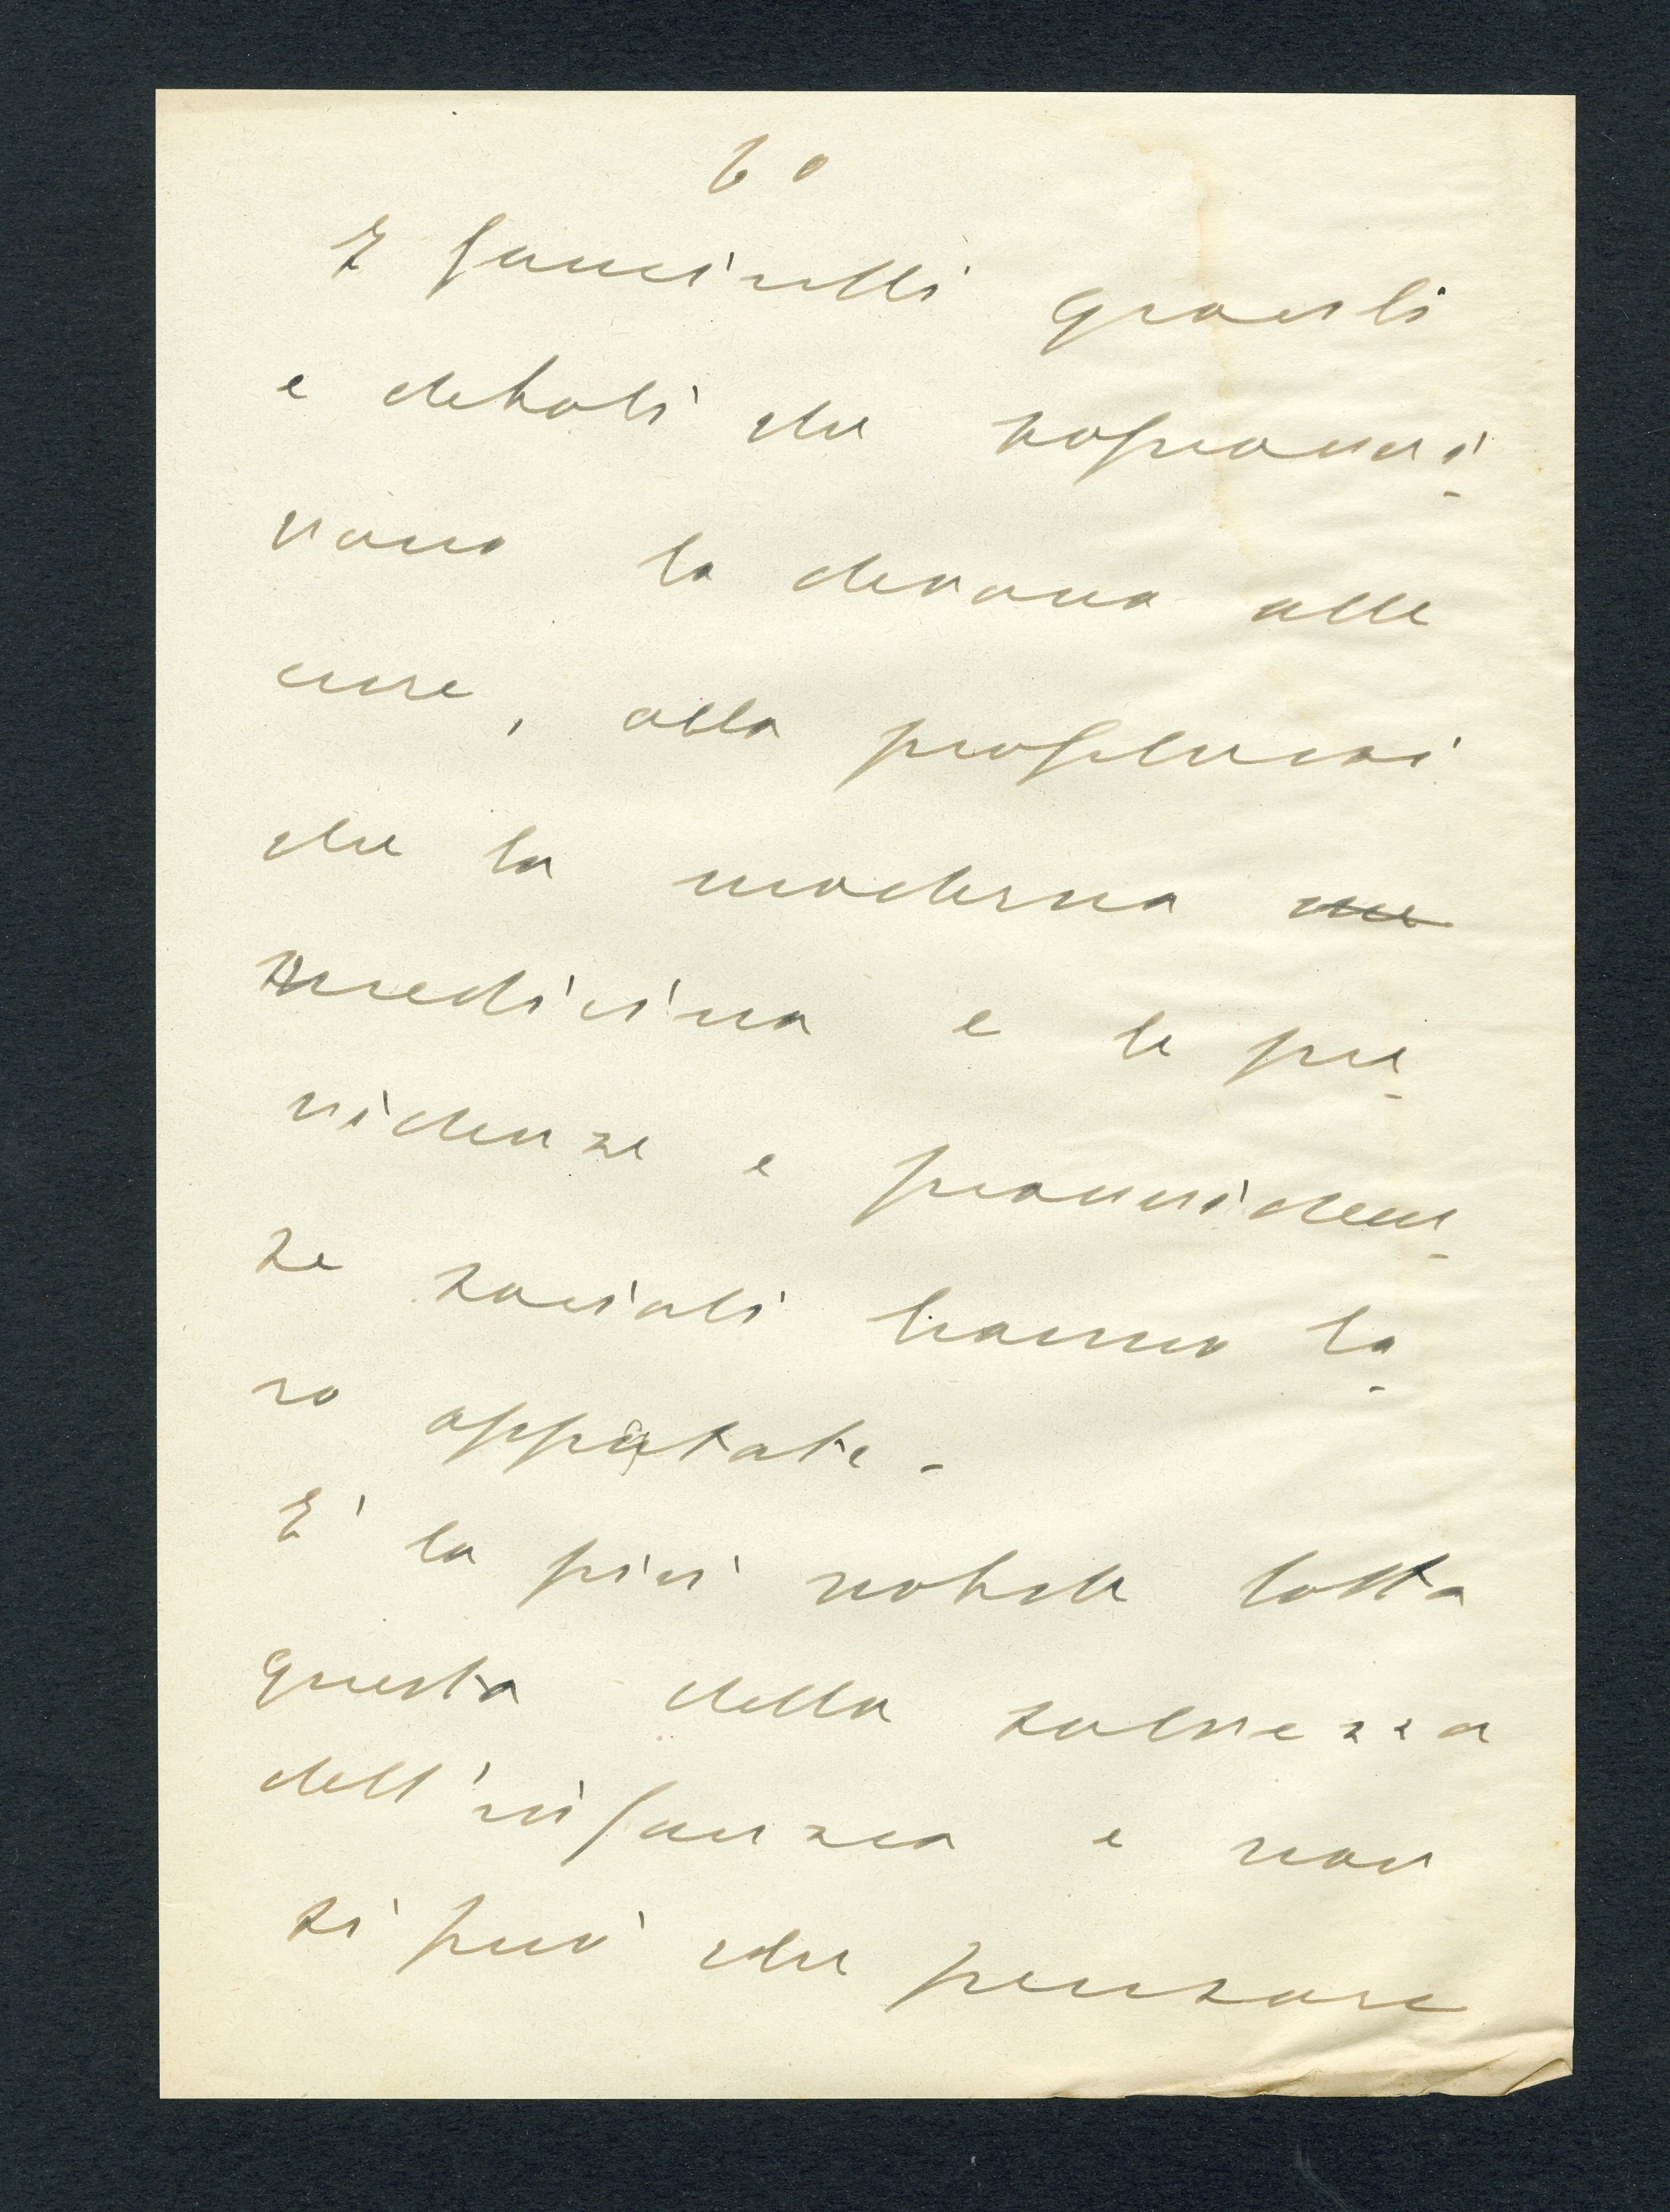 6°
I fanciulli gracili
e deboli che sopravvi-
vono lo devono alle
cure, alla profilassi
che la moderna me
medicina e le pre-
videnze e provviden-
ze sociali hanno lo-
ro apprestate.
E' la più nobile lotta
questa della salvezza
dell'infanzia e non
si può che pensare